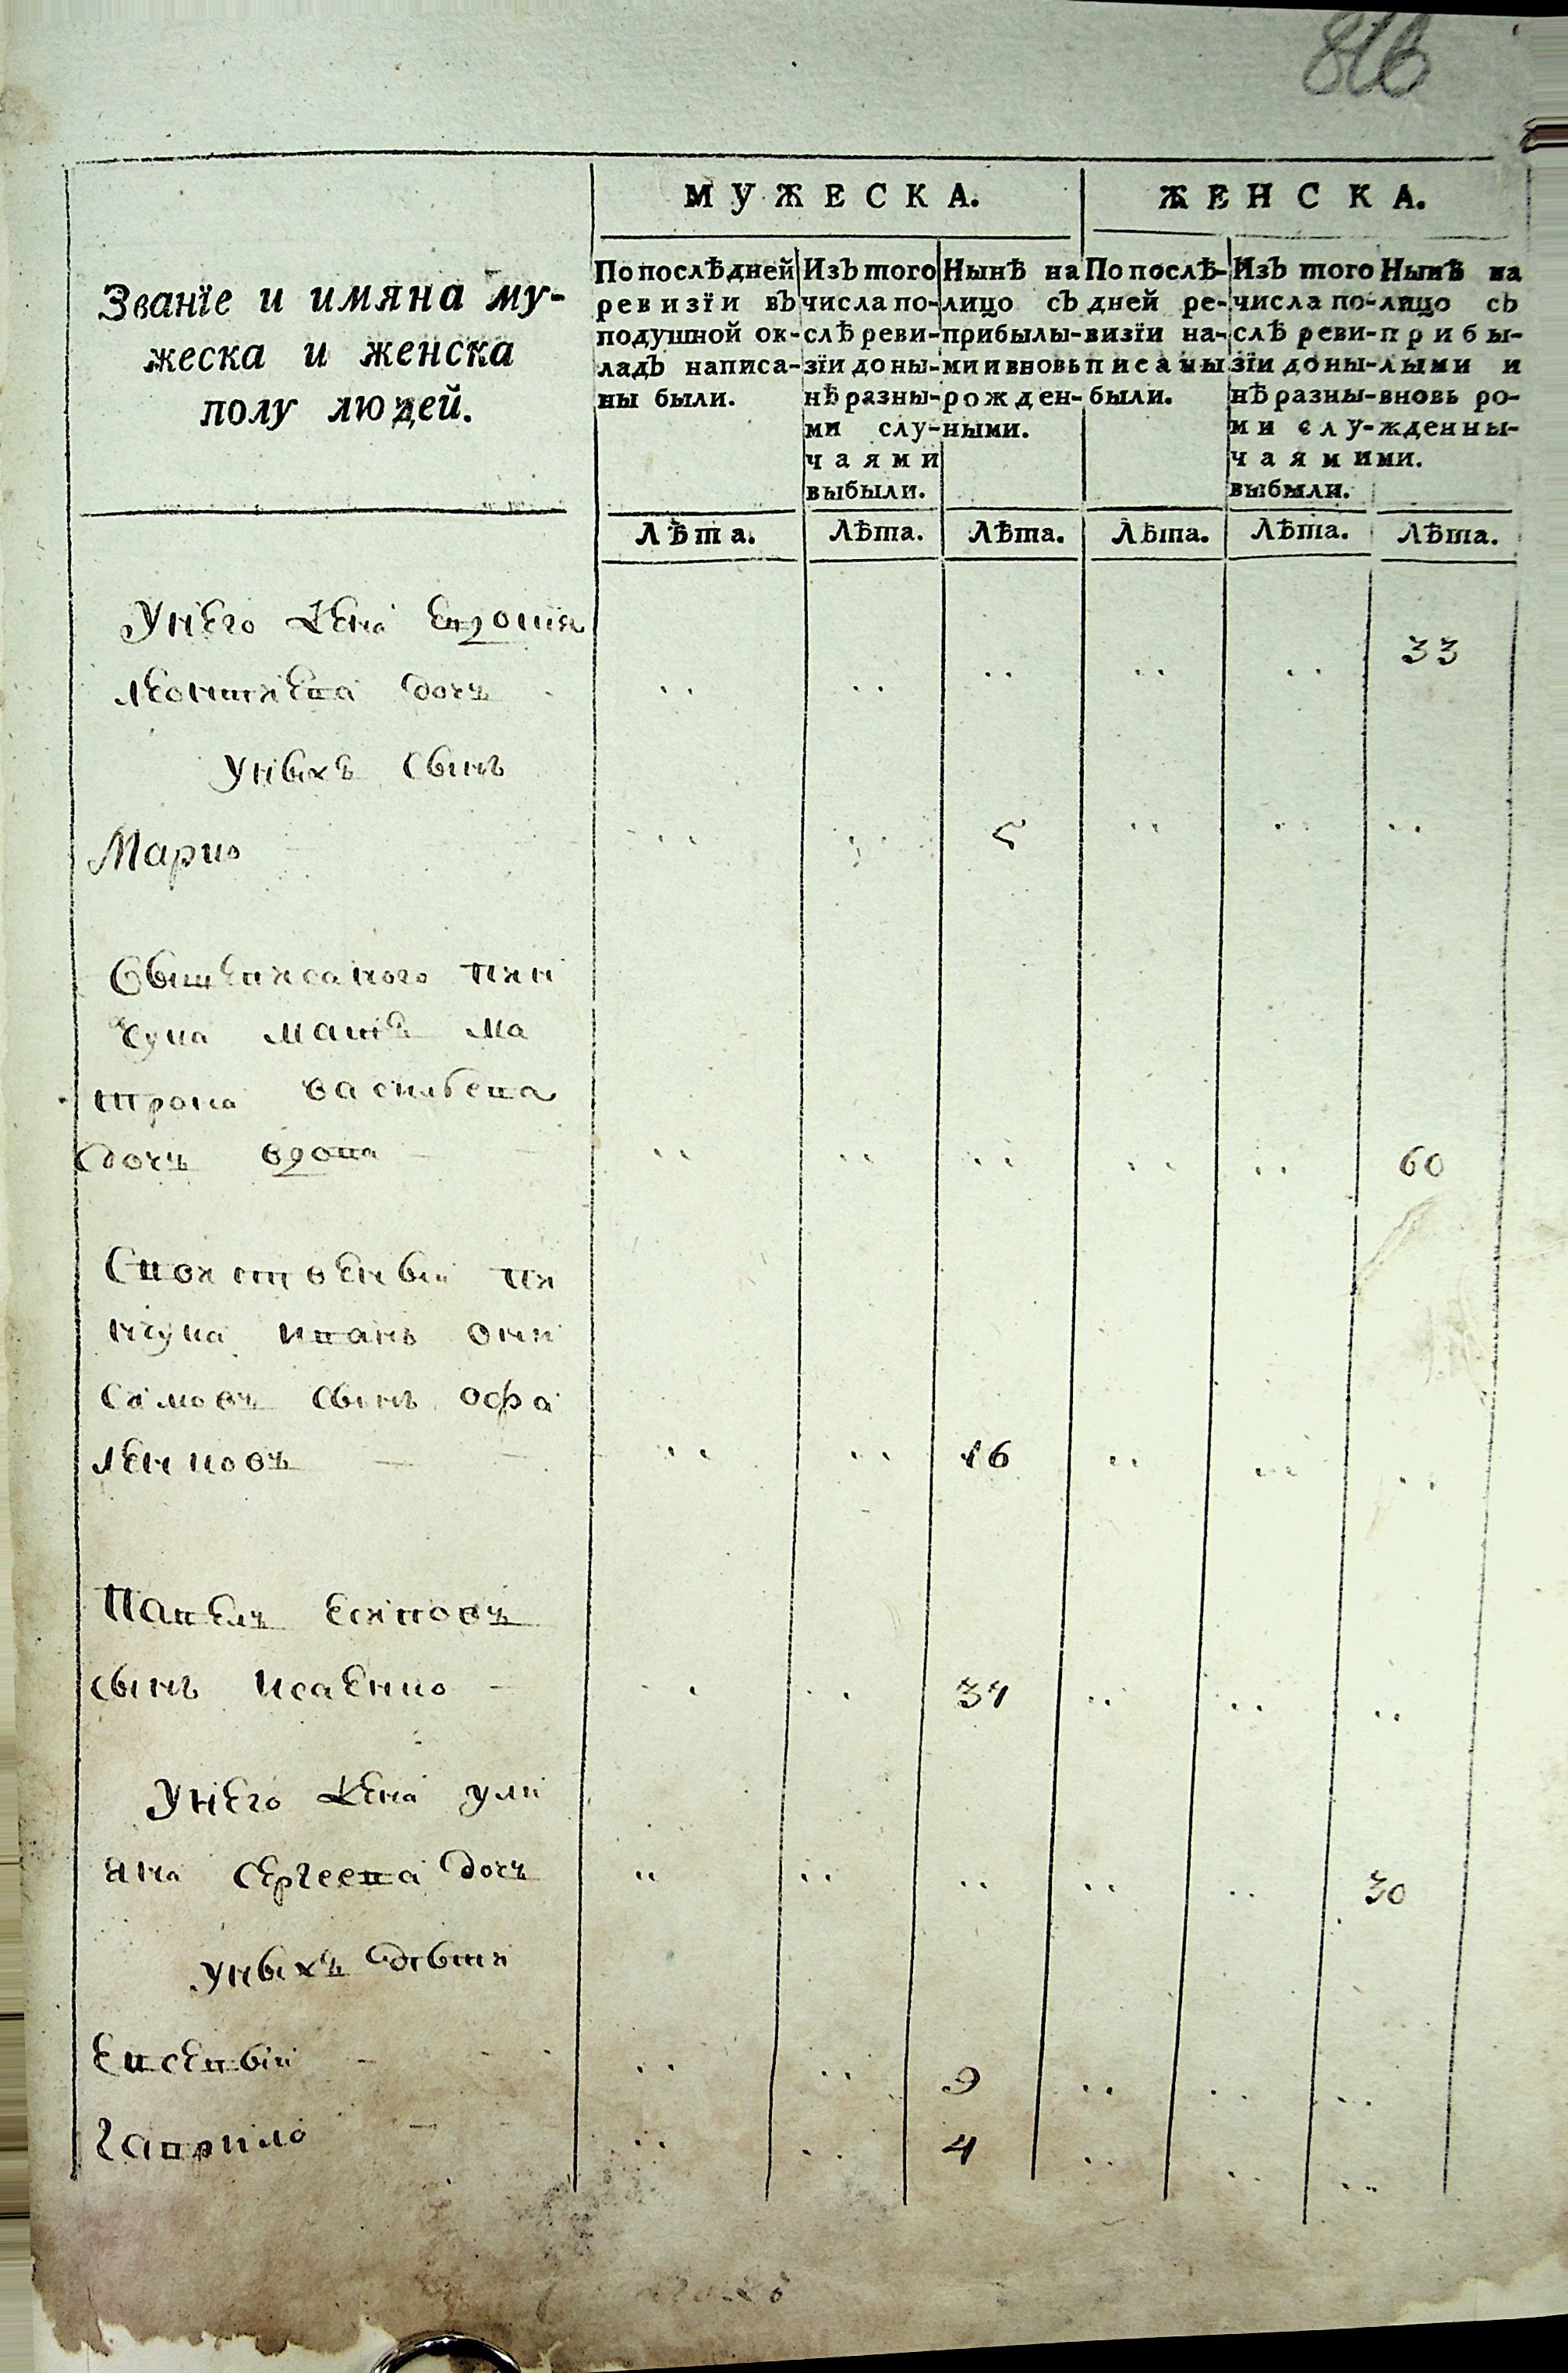 816
МУЖЕСКА. ЖЕНСКА.
Званїе и имяна му-
жеска и женска
полу людей.
По послѣдней ревизїи въ подушной окладъ написаны были.
Изъ того числа послѣ ревизїи до нынѣ разными случаями выбыли.
Нынѣ на лицо съ прибылыми и вновь рожденными.
По послѣдней ревизїи написаны были.
Изъ того числа послѣ ревизїи до нынѣ разными случаями выбыли.
Нынѣ на лицо съ прибылыми и вновь рожденными.
Лѣта. Лѣта. Лѣта. Лѣта. Лѣта. Лѣта.
У него жена евдошия
леонтиева дочь 33
У ныхъ сынъ
Марко 5
Овышеписаного пин
чука мать Ма
трона васильева
дочь вдова 60
Свойственый пи
нчука иванъ они
симовъ сынъ офа
ленковъ 16
Павелъ есиповъ
сынъ исаенко 34
У него жена ули
яна сергеева дочь 30
У ныхъ дѣти
Евсевый 9
Гаврило 4